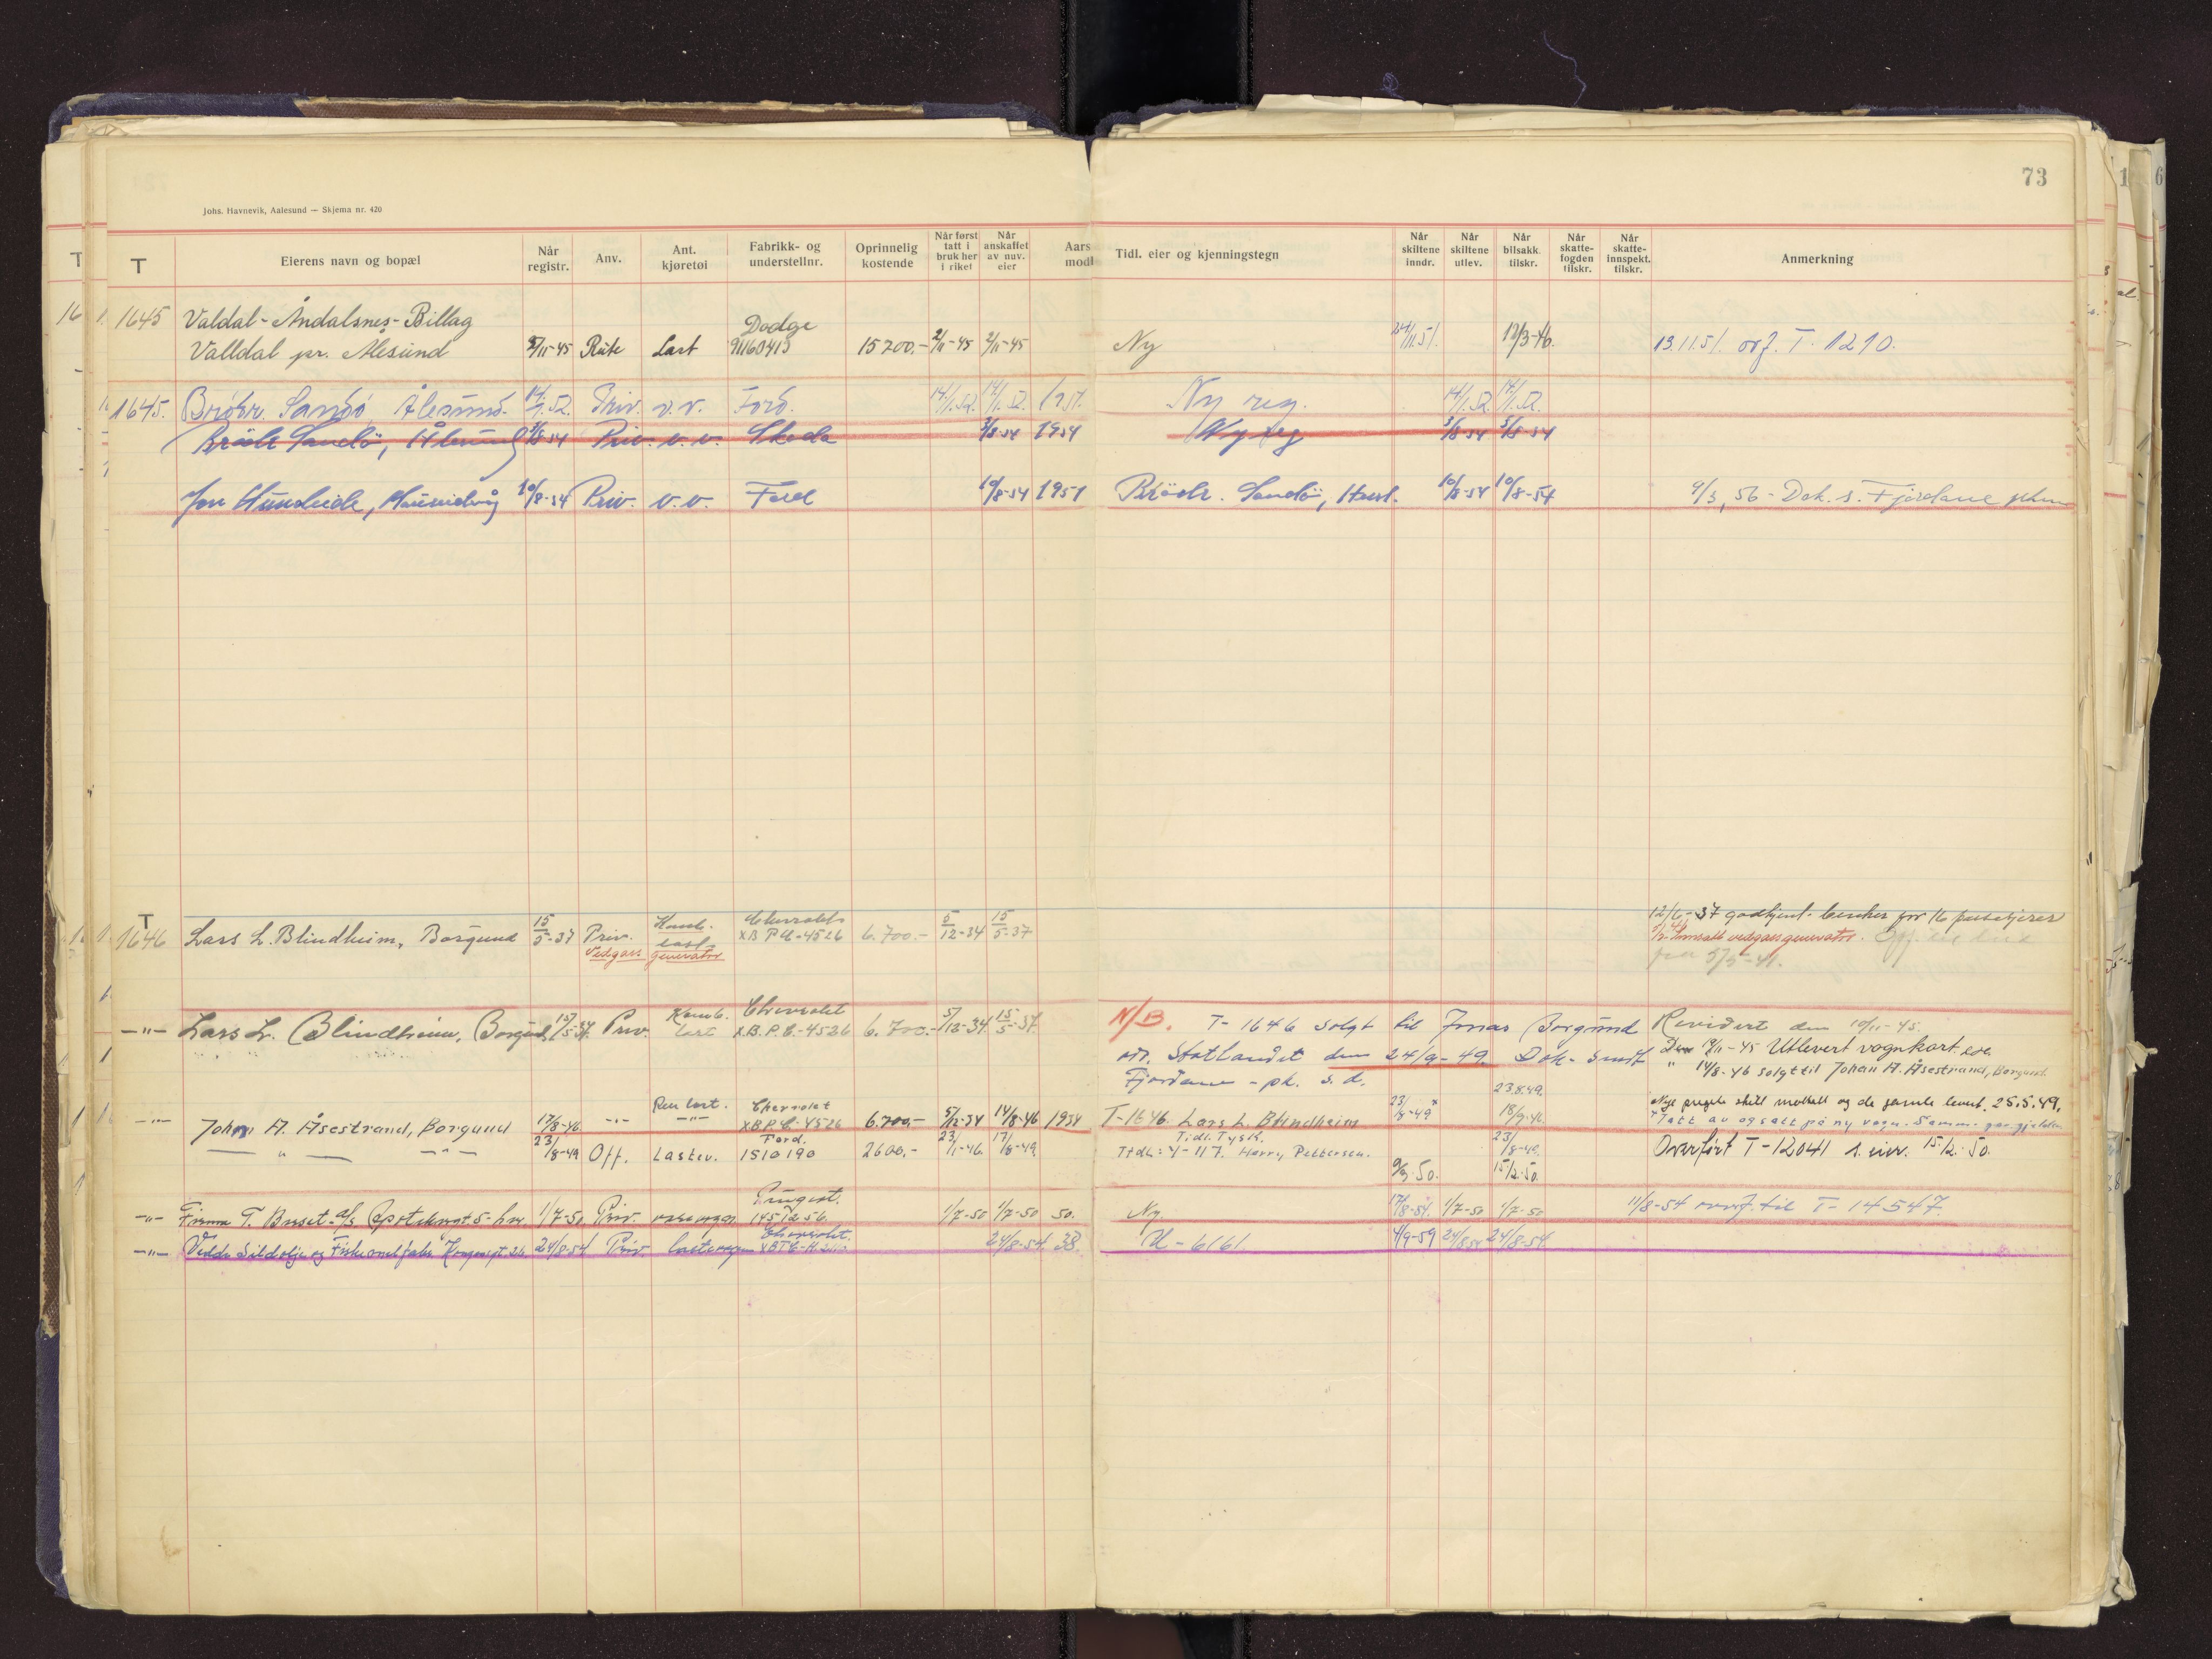 73
Johs. Havnevik, Aalesund — Skjema nr. 420
T Eierens navn og bopæl Når registr. Anv. Ant. kjøretøi Fabrikk- og understellnr. Oprinnelig kostende Når først tatt i bruk her i riket Når anskaffet av nuv. eier Aars modl Tidl. eier og kjenningstegn Når skiltene inndr. Når skiltene utlev. Når bilsakk. tilskr. Når skatte-fogden tilskr. Når skatte-innspekt. tilskr. Anmerkning
1645 Valdal-Åndalsnes-Billag Dodge
Valldal pr. Ålesund 2/11-45 Rute Last 91160413 15200.- 2/11-45 2/11-45 Ny 24/11.51. 12/3-46. 13.11.51. ovf. T. 1210.
1645. Brødr. Sandø Ålesund. 14/1.52. Priv. v.v. Ford. 14/1.52. 14/1.52. 1951. Ny reg. 14/1.52. 14/1.52.
Brødr Sandö, Ålesund 3/8-54 Priv. v. v. Skoda 3/8-54 1954 Ny reg 3/8-54 3/8-54
Jon Hunsheide, 10/8-54 Priv. v.v. Ford 10/8-54 1951 Brödr. Sandö, 10/8-54 10/8-54 9/3, 56 - Dok. s. Fjordane
T 1646 Lars L. Blindheim, Borgund 15/5-37 Priv. Komb. last- Chevrolet XBPC-4526 6.700.- 5/12-34 15/5-37 12/6-37 godkjent for 16 passasjerer
Vedgass generator vedgassgenerator.
5/5-41.
-"- Lars L. Blindheim, Borgund, 15/5-37. Priv. Komb. last Chevrolet X.B.P.C.-4526 6.700.- 5/12-34 15/5-37. N/B. T-1646 solgt til Jonas Borgund Revidert den 10/11-45.
Statlandet den 24/9-49. Dok- sendt Den 19/11-45 Utlevert vognkort.
Fjordane - pk. s.d. " 14/8-46 solgt til Johan A. Åsestrand, Borgund.
23.8.49.
-"- Johan A. Åsestrand, Borgund 17/8-46 -"- Ren last. -"- Chevrolet XBPC-4526 6.700,- 5/12-34 14/8-46 1934 T-1646. Lars L. Blindheim 23/8-49 18/9-46. Nye skilt mottatt og de gamle levert. 25.5.49.
Tatt av og satt på ny vogn.
— " — -"- 23/8-49 Off. Lastev. Ford. 1510190 2600.- 23/1-46. 17/8-49. Tidl. Tysk. Harry Pettersen. 23/8-49. Overført T-12041 s. eier. 15.12.50.
9/9.50. 15/12.50.
-"- Firma T. Buset a/s 1/7-50 Priv. varevogn 1457256. 1/7-50 1/7-50 50. Ny. 17/8-54. 1/7-50 1/7-50 11/8-54 overf. til T-14547.
-"- Vedde Sildolje og Fiskemelfabr. 24/8-54 Priv. lastevogn Chevrolet. 24/8-54 38. U-6161. 4/9-59 24/8-54 24/8-54